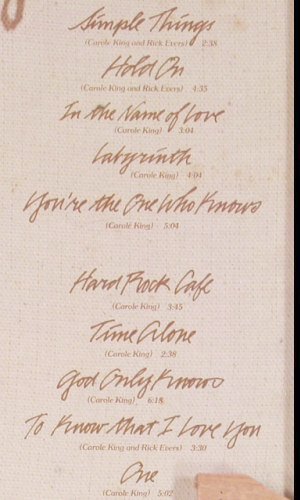 Simple Things
(Carole King and Rick Evers) 2:38
Hold On
(Carole King and Rick Evers) 4:35
In the Name of Love
(Carole King) 3:04
Labyrinth
(Carole King) 4:04
You're the One Who Knows
(Carole King) 5:04
Hard Rock Cafe
(Carole King) 3:45
Time Alone
(Carole King) 2:38
God Only Knows
(Carole King) 6:18
To Know that I Love You
(Carole King and Rick Evers) 3:30
One
(Carole King) 5:02